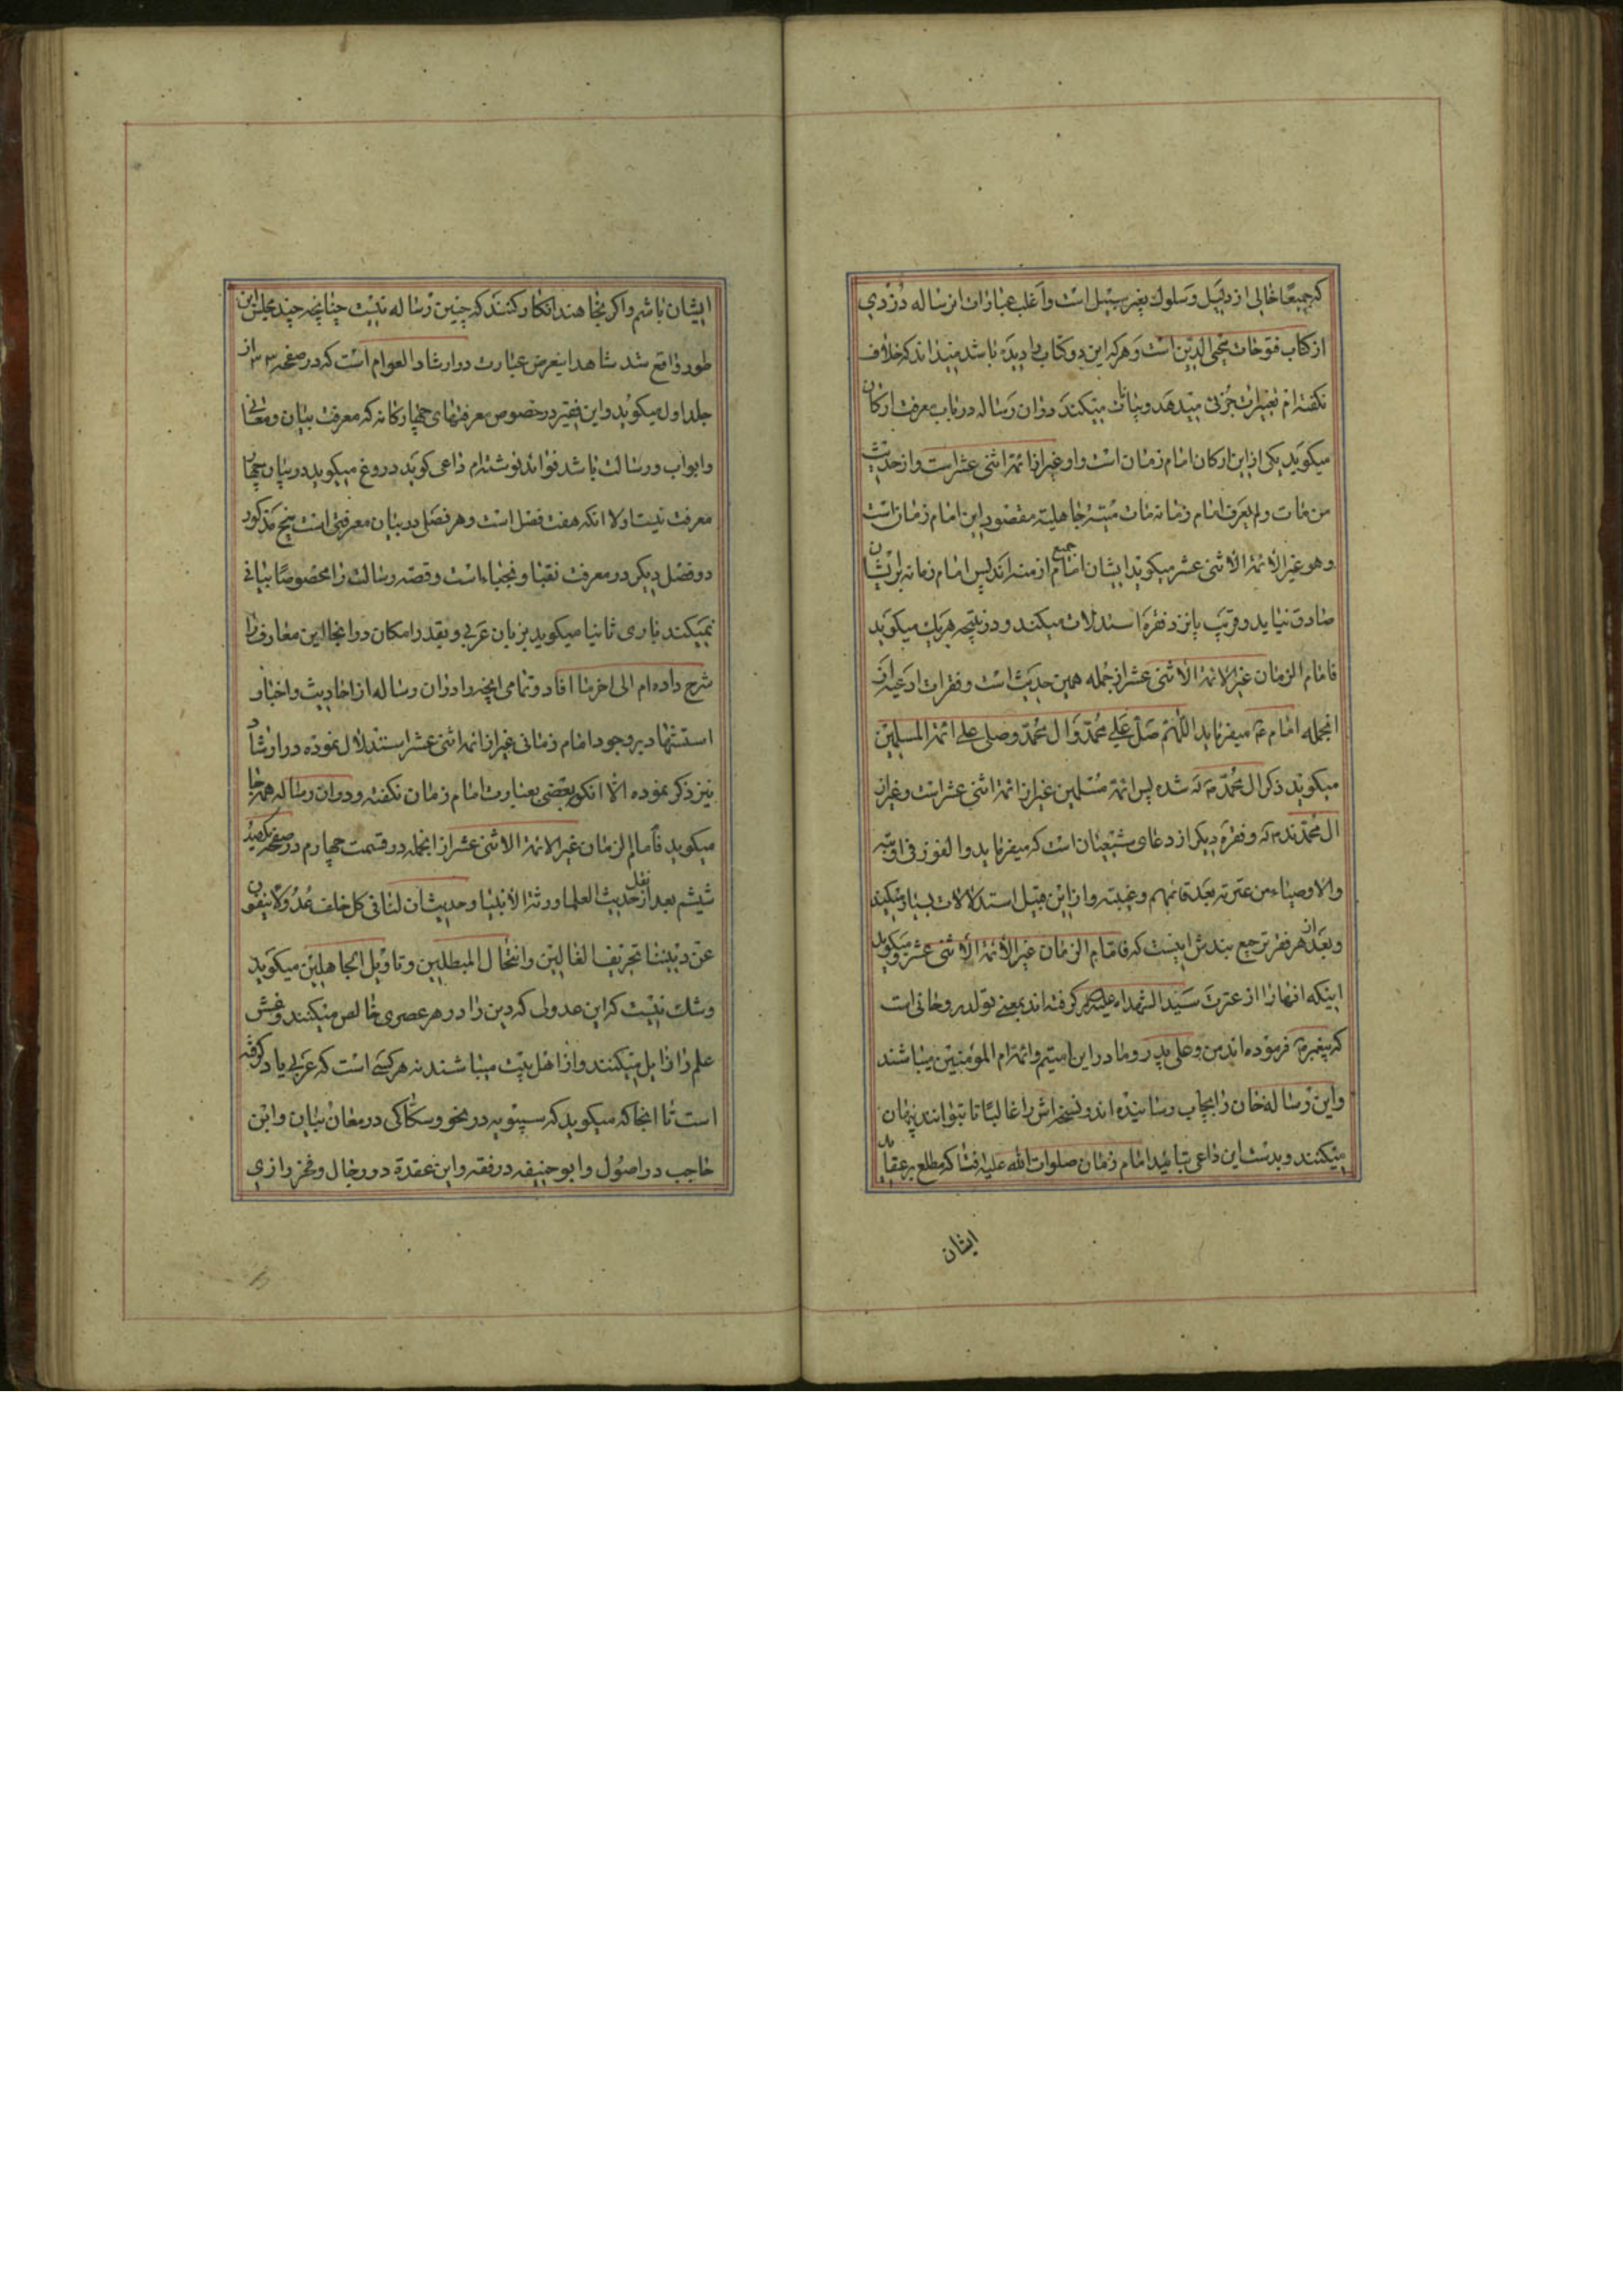 که جمیعًا خالی از دلیل و سلوك بغیر سبیل است و اغلب عبارات ان رساله دزدی
از کتاب فتوحات محیی الدین است و هر که این دو کتاب را دیده باشد میداند که خلاف
نگفته ام تغییرات جزئی میدهد و بیانات میکند در ان رساله در باب معرفت ارکان
میگوید یکی از این ارکان امام زمان است و او غیر از ائمه اثنی عشر است و از حدیث
من مات و لم یعرف امام زمانه مات میتة جاهلیة مقصود این امام زمان است
و هو غیر الائمة الاثنی عشر میگوید ایشان امام جمیع ازمنه اند پس امام زمانه بر ایشان
صادق نیاید و قریب پانزده فقره استدلات میکند و در نتیجه هر یك میگوید
فامام الزمان غیر الائمة الاثنی عشر از جمله همین حدیث است و فقرات ادعیه
انجمله امام ع میفرماید اللهم صل علی محمد و ال محمد و صلی علی ائمة المسلمین
میگوید ذکر ال محمد که شده پس ائمه مسلمین غیر از ائمه اثنی عشر است و غیر از
ال محمدند که و فقره دیگر از دعای شعبان است که میفرماید و الفوز فی اوبته
و الاوصیاء من عترته بعد قائمهم و غیبته و از این قبیل استدلالات بسیار میکند
و بعد از هر فقره ترجیع بندش اینست که فامام الزمان غیر الائمة الاثنی عشر و میگوید
اینکه انها را از عترت سید الشهداء علیه گرفته اند بمعنی تولد روحانی است
که پیغمبر فرموده اند من و علی پدر و مادر این امتیم و ائمه ام المؤمنین میباشند
و این رساله خان را بچاپ رسانیده اند و نسخه اش را غالبًا تا بتوانند پنهان
میکنند و بدست این داعی بتایید امام زمان صلوات الله علیه فتاد که مطلع بر عقاید
ایشان
ایشان باشم و اگر بخاهند انکار کنند که چنین رساله نیست چنانچه چند مجلس این
طور واقع شد شاهد اینغرض عبارت در ارشاد العوام است که در صفحه ۳۳ از
جلد اول میگوید و این فقیر در خصوص معرفتهای چهارکانه که معرفت بیان و معانی
و ابواب و رسالت باشد فوائد نوشته ام داعی گوید دروغ میگوید در بیان چهار
معرفت نیست اولا انکه هفت فضل است و هر فصلی در بیان معرفتی است پنج مذکور
دو فضل دیگر در معرفت نقبا و نجباء است و قصه رسالت را مخصوصًا بیانی
نمیکند باری ثانیا میگوید بزبان عربی و بقدر امکان در انجا این معارف را
شرح داده ام الی اخر ما افاد و تمامی انچه را در ان رساله از احادیث و اخبار
استشهاد بر وجود امام زمانی غیر از ائمه اثنی عشر استدلال نموده در ارشاد
نیز ذکر نموده الا انکه بعضی بعبارت امام زمان نگفته و در ان رساله همه جا
میگوید فامام الزمان غیر الائمة الاثنی عشر از انجمله در قسمت چهارم در صفحه یکصد
ششم بعد از نقل حدیث العلما ورثة الانبیا و حدیث ان لنا فی کل خلف عدولا ینفون
عن دیننا تحریف الغالین و انتحال المبطلین و تاویل الجاهلین میگوید
و شك نیست که این عدولی که دین را در هر عصری خالص میکنند و غش
علم را زایل میکنند و از اهل بیت میباشند نه هر کسی است که عربی یاد گرفته
است تا انجا که میگوید که سیبویه در نحو و سکاکی در معان بیان و ابن
حاجب در اصول و ابو حنیفه در فقه و ابن عقدة در رجال و فخر رازی